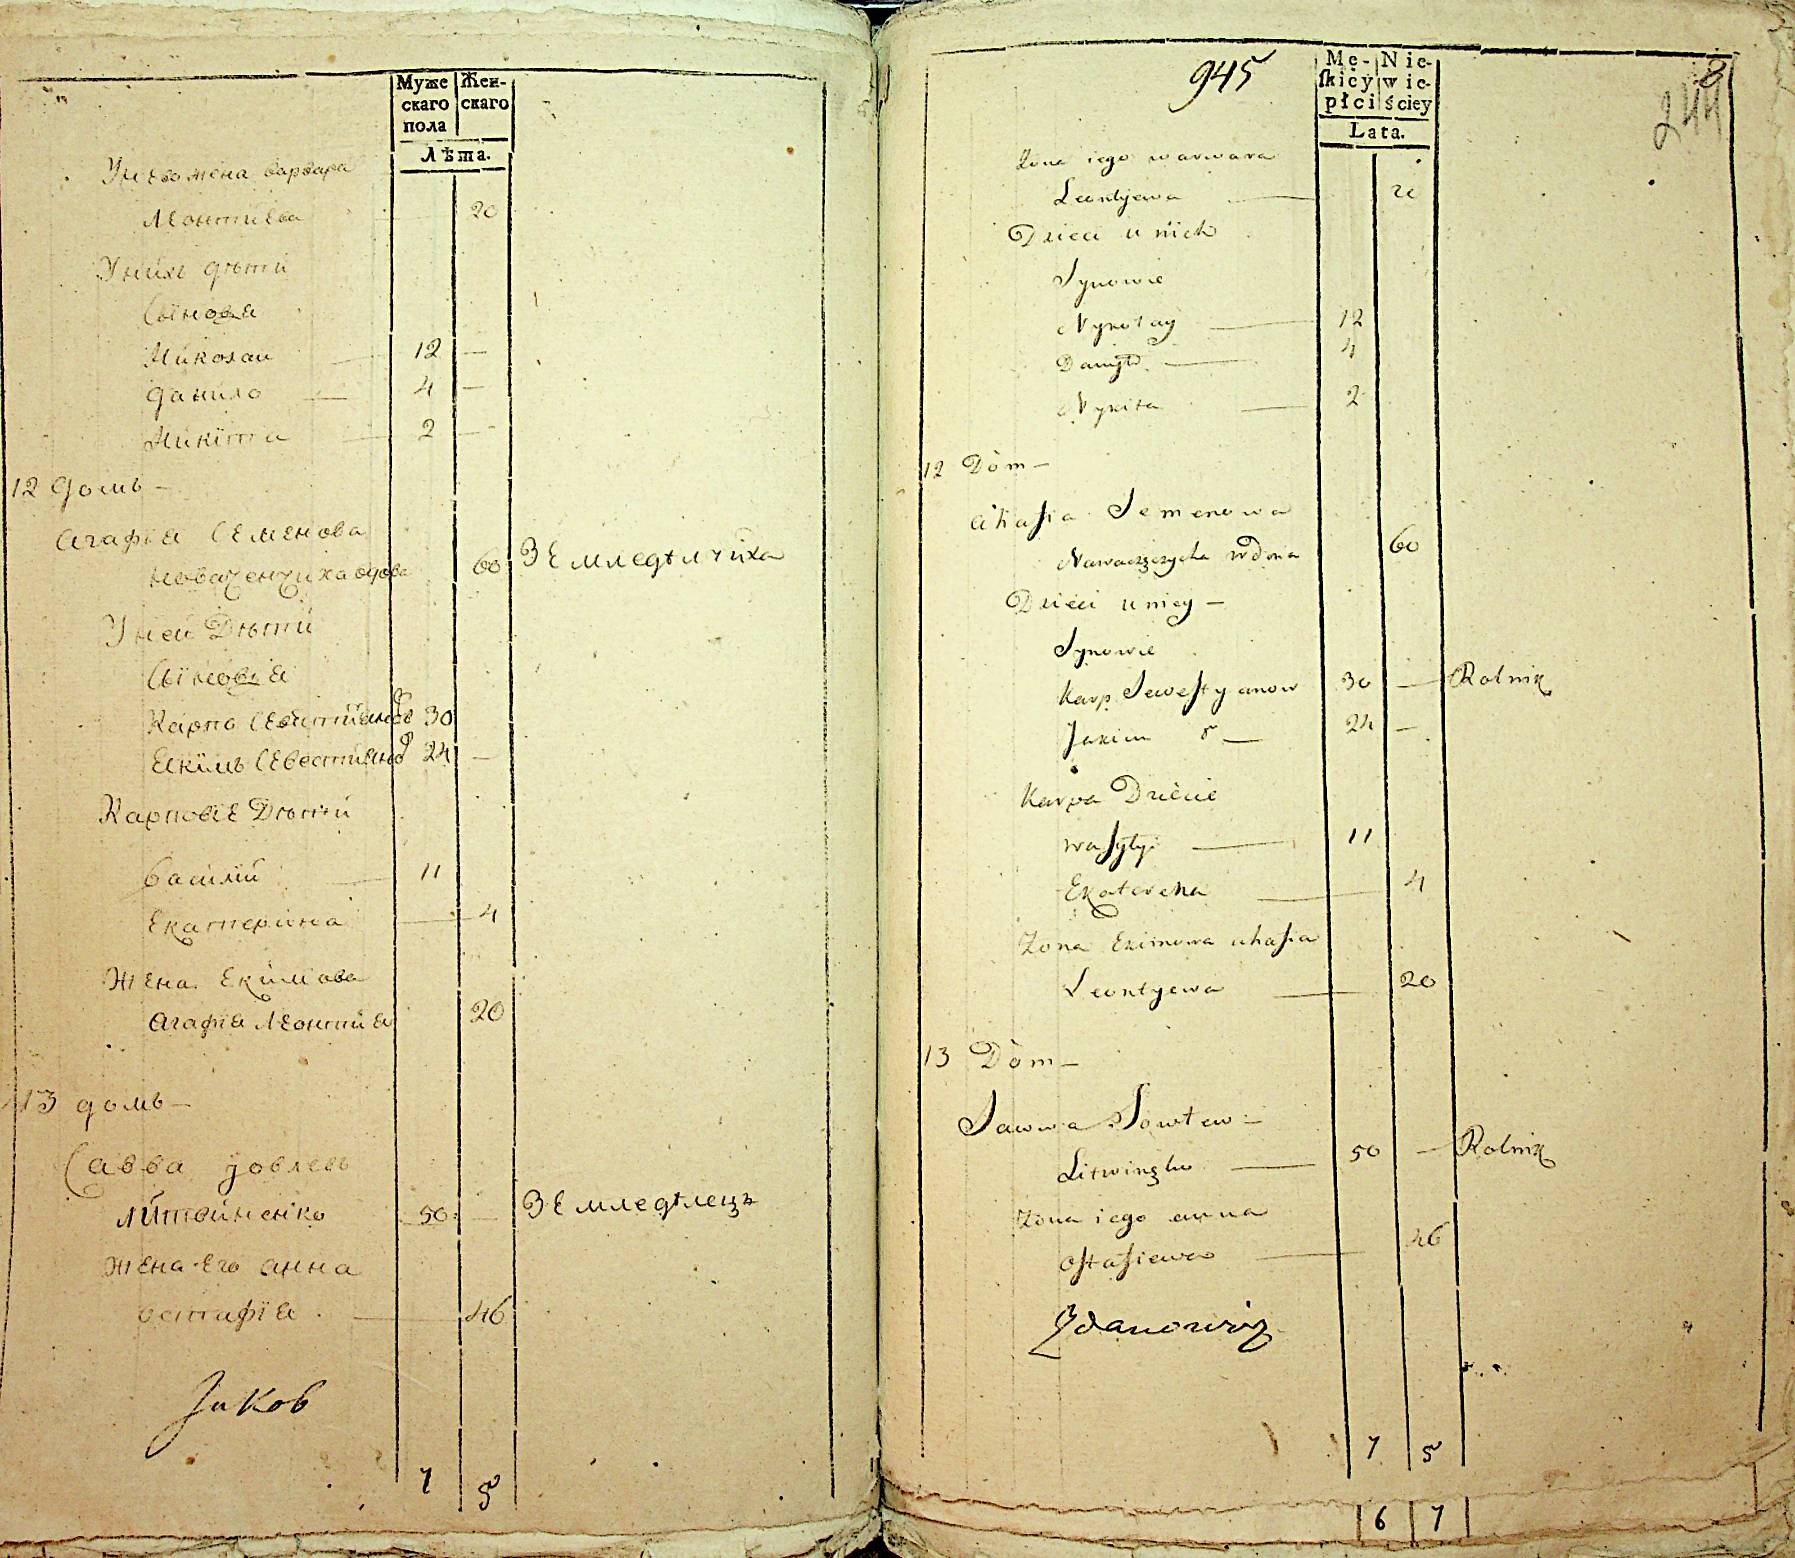 Муже
скаго
пола
Жен-
скаго
Лѣта.
Унево жена варвара
Леонтиева 20
Уních дѣти
Сынове
Николаи 12 —
Данило 4 —
Никита 2 —
12 домъ —
Агафiя Семенова
вдова 60 Земледѣлчиха
Уней Дѣти
Сыновiя
Карпъ Севистиянов 30
Екимъ Севестиянов 24 —
Карповiе Дѣти
василiй 11
Екатерина 4
Жена Екимова
Агафiя Леонтиiя 20
13 домъ —
Савва Iовлевъ
Литвиненко 50 — Земледѣлецъ
Жена Его анна
остафiя 46
7 5
945
Mę-
skiey
płci
Nie-
wie-
ściey
Lata.
8
244
żona iego warwara
Leontjewa 20
Dzieci u nich
Synowie
Nykołay 12
Daniło 4
Nykita 2
12 Dòm —
Ahafia Semenowa
wdowa 60
Dzieci u niey —
Synowie
Karp Sewestyanow 30 — Rolnik
Jakim 24 —
Karpa Dziecie
wasyly 11
Ekaterena 4
Zona Ekimowa ahafia
Leontyewa 20
13 Dòm —
Sawwa Jowlew —
Litwinęko 50 — Rolnik
Zona iego anna
Ostafiewa 46
Zdanowicz
7 5
6 7